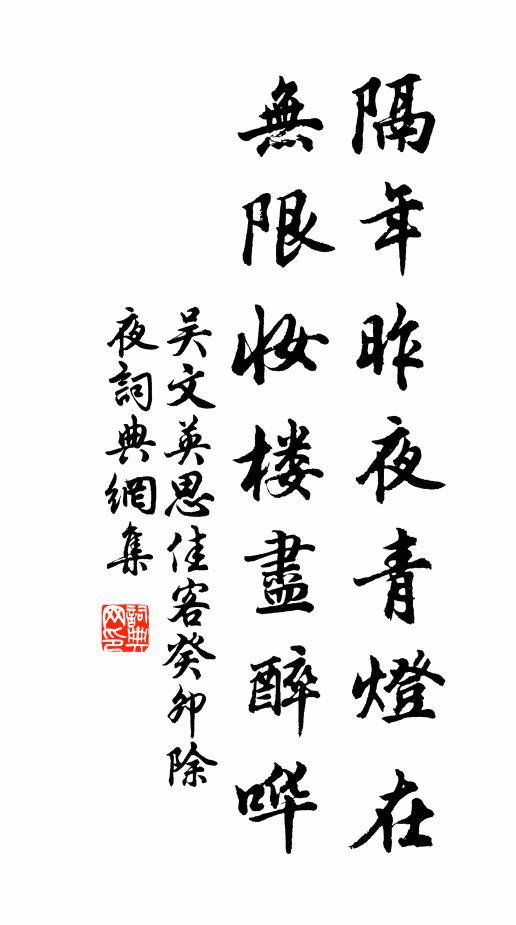 隔年昨夜青燈在
無限妆楼盡醉哗
吴文英思佳客癸卯除
夜詞典網集
詞典网印